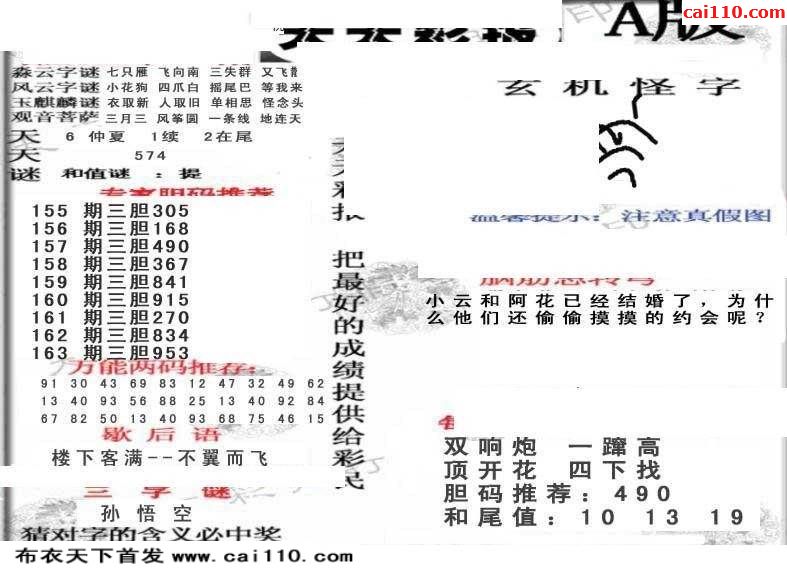 cai110.com
A版
森云字谜 七只雁 飞向南 三失群 又飞
风云字谜 小花狗 四爪白 摇尾巴 等我来
玉麒麟谜 衣取新 人取旧 单相思 怪念头
观音菩萨 三月三 风筝圆 一条线 地连天
天 6 仲夏 1续 2在尾
天 574
谜 和值谜 :提
专家胆码推荐
155 期三胆305
156 期三胆168
157 期三胆490
158 期三胆367
159 期三胆841
160 期三胆915
161 期三胆270
162 期三胆834
163 期三胆953
万能两码推荐:
91 30 43 69 83 12 47 32 49 62
13 40 93 56 88 25 13 40 92 84
67 82 50 13 40 93 68 75 46 15
歇后语
楼下客满--不翼而飞
三字谜
孙悟空
猜对字的含义必中奖
布衣天下首发 www.cai110.com
天天彩报 把最好的成绩提供给彩民
玄机怪字
温馨提示: 注意真假图
脑筋急转弯
小云和阿花已经结婚了,为什
么他们还偷偷摸摸的约会呢?
双响炮 一蹿高
顶开花 四下找
胆码推荐:490
和尾值:10 13 19